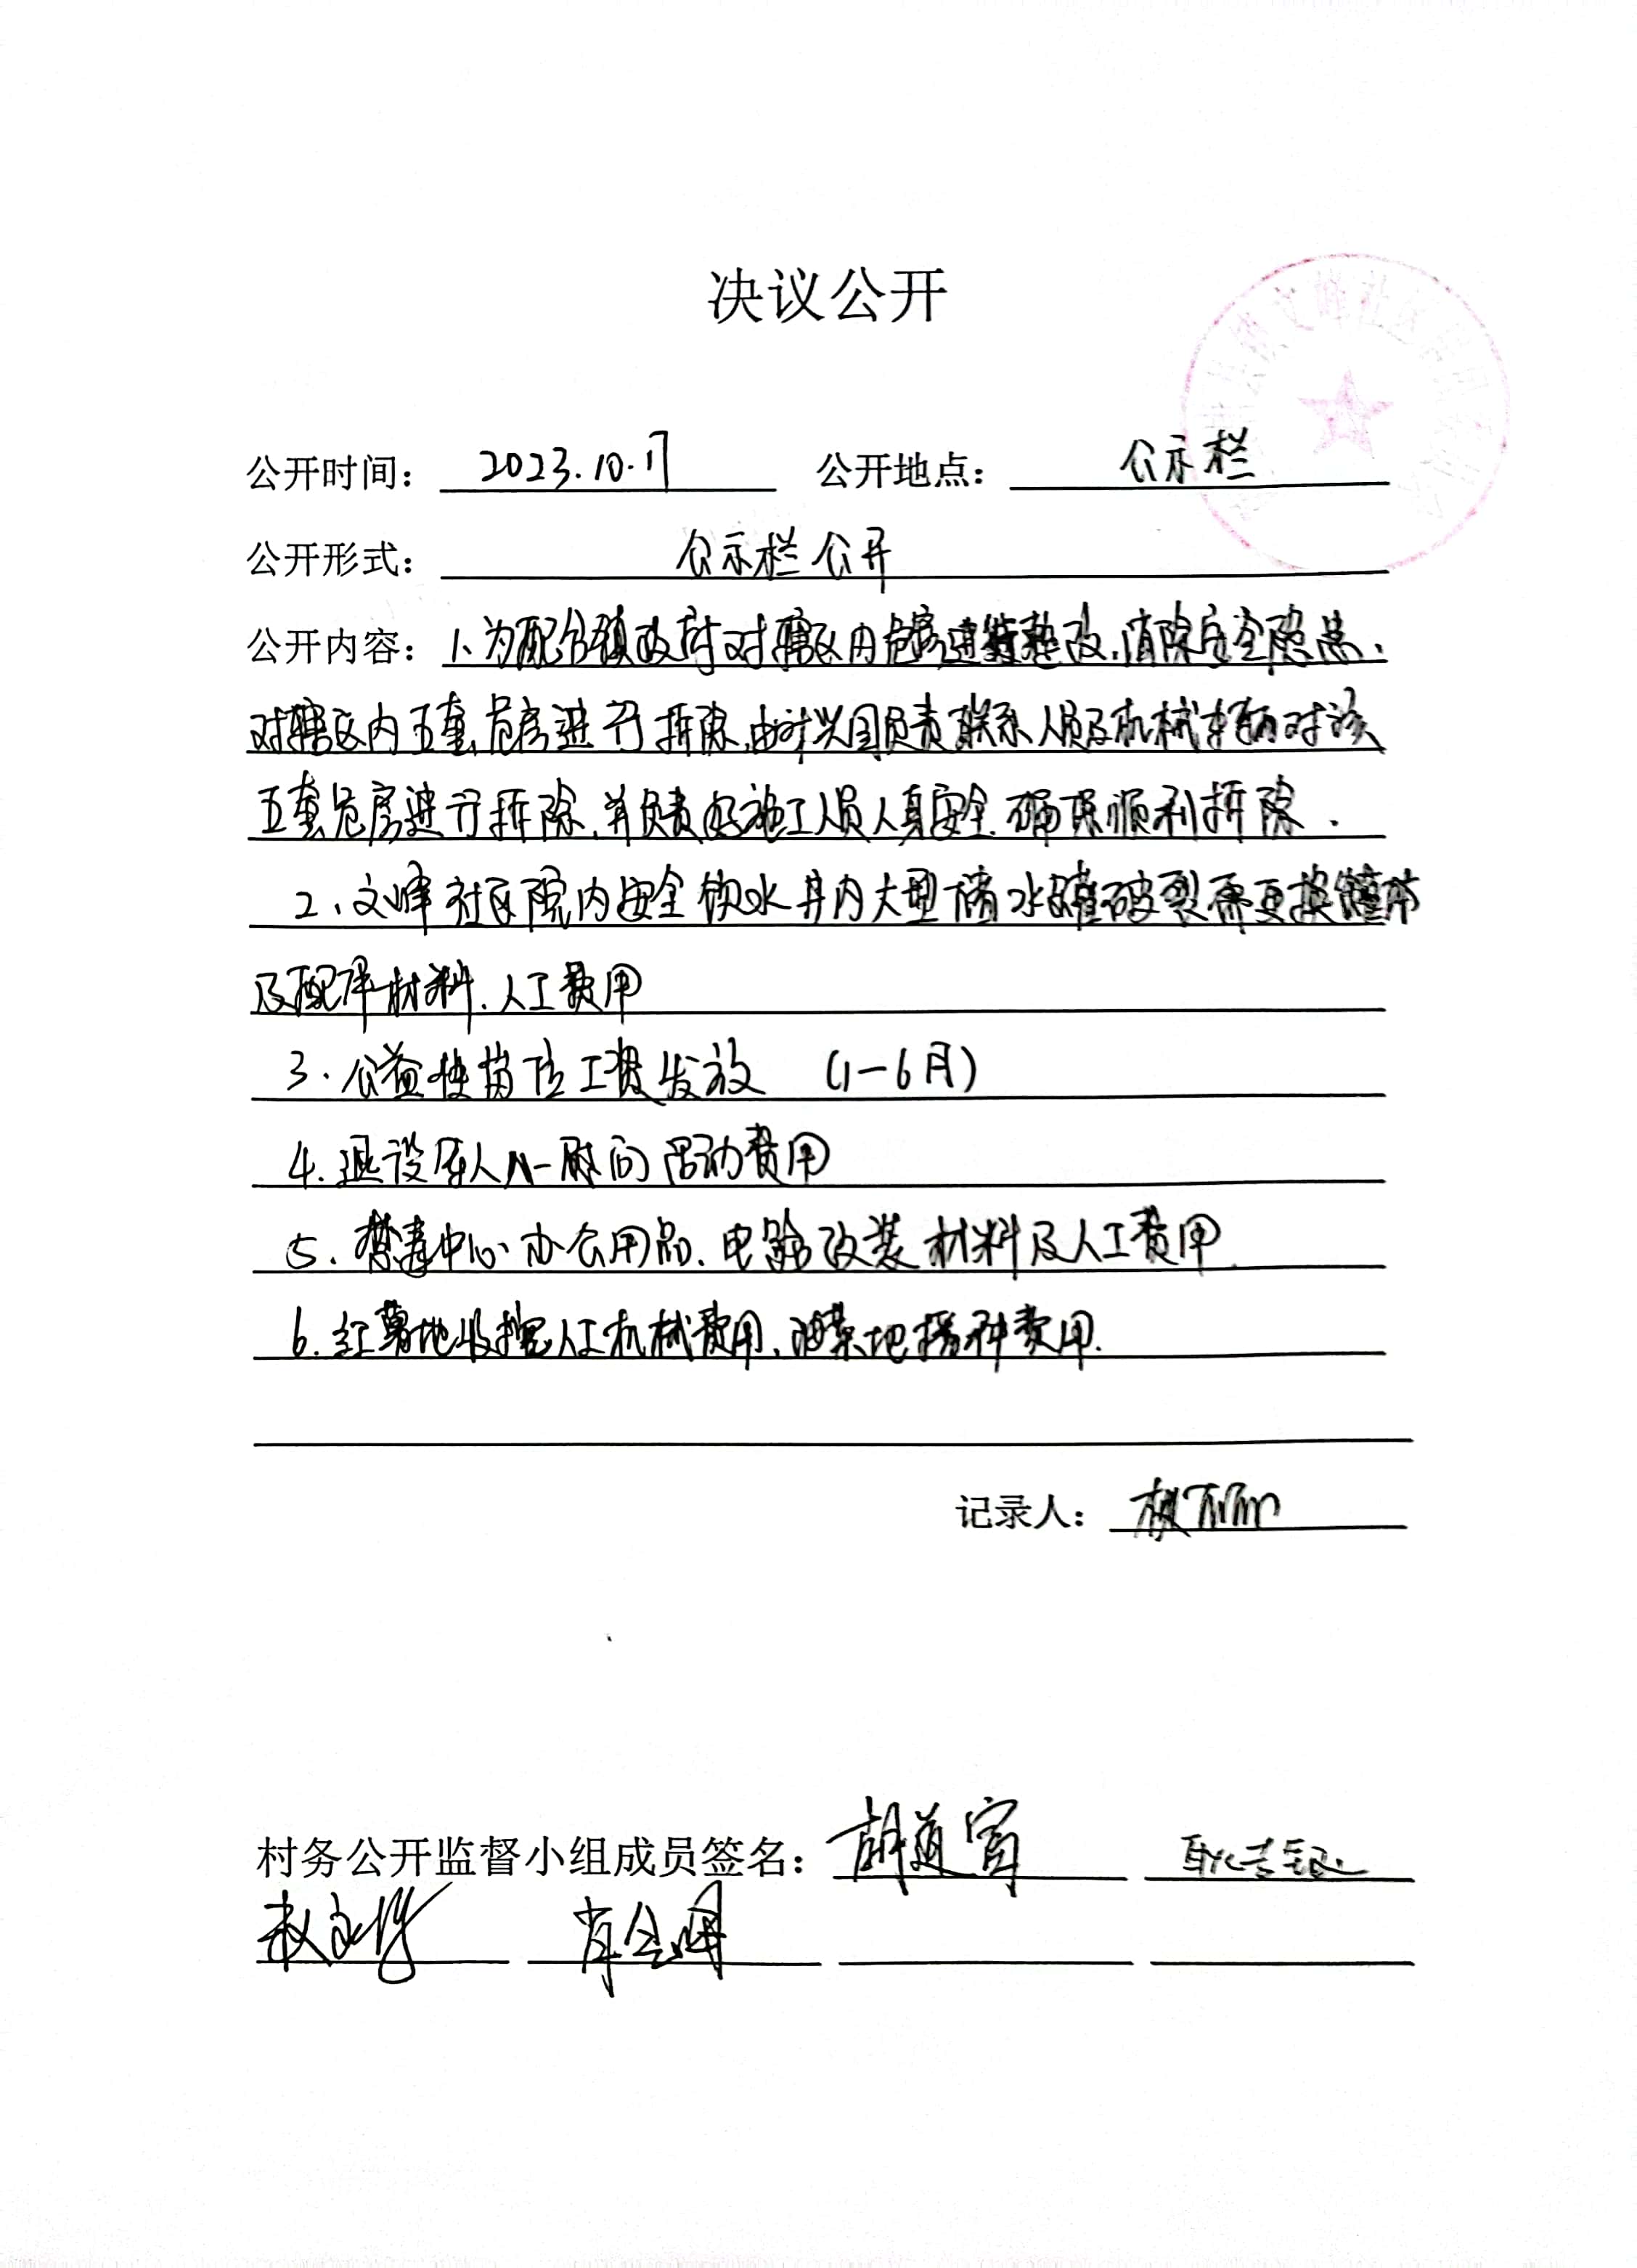 决议公开
公开时间： 2023.10.17 公开地点： 公示栏
公开形式： 公示栏公开
公开内容： 1、为配合镇政府对辖区内危房进行整改，消除安全隐患，
对辖区内五套危房进行拆除，由 兴国负责联系人员及机械车辆对该
五套危房进行拆除，并负责好施工人员人身安全，确保顺利拆除．
2、文峰社区院内安全饮水井内大型储水罐破裂需更换罐
及配件材料、人工费用
3．公益性岗位工资发放 (1－6月)
4．退役军人八一慰问活动费用
5．禁毒中心办公用品、电路改装材料及人工费用
6．红薯地收挖人工机械费用、油菜地播种费用．
记录人：
村务公开监督小组成员签名： 胡道富
赵文 肖金
文峰社区